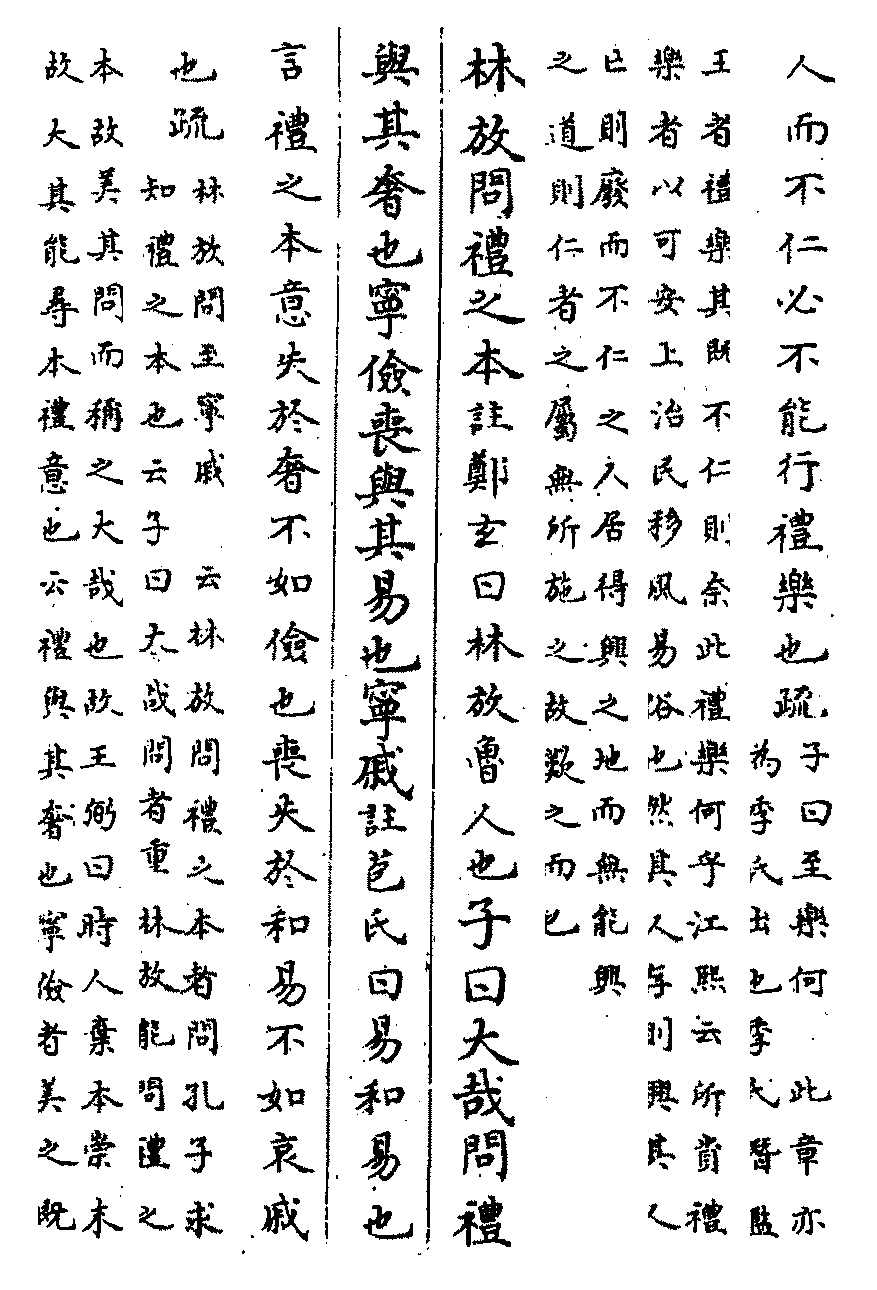 人而不仁必不能行禮樂也疏
子曰至樂何　此章亦
為季氏出也季氏僭濫
王者禮樂其既不仁則奈此禮樂何乎江熙云所貴禮
樂者以可安上治民移風易俗也然其人存則興其人
亡則廢而不仁之人居得興之地而無能興
之道則仁者之屬無所施之故歎之而已
林放問禮之本註鄭玄曰林放魯人也子曰大哉問禮
與其奢也寧儉喪與其易也寧戚註苞氏曰易和易也
言禮之本意失於奢不如儉也喪失於和易不如哀戚
也疏
林放問至寧戚　云林放問禮之本者問孔子求
知禮之本也云子曰大哉問者重林放能問禮之
本故美其問而稱之大哉也故王弼曰時人棄本崇末
故大其能尋本禮意也云禮與其奢也寧儉者美之既